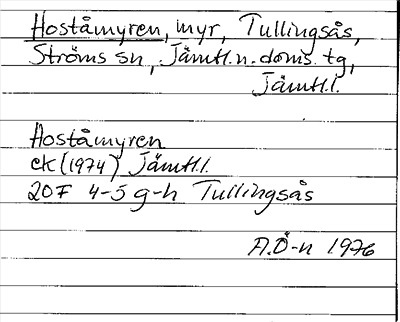 Hoståmyren, myr, Tullingsås,
Ströms sn, Jämtl.n. doms. tg,
Jämtl.l.
Hoståmyren
ek (1974) Jämtl.l.
20F 4-5 g-h Tullingsås
A.Ö-n 1976